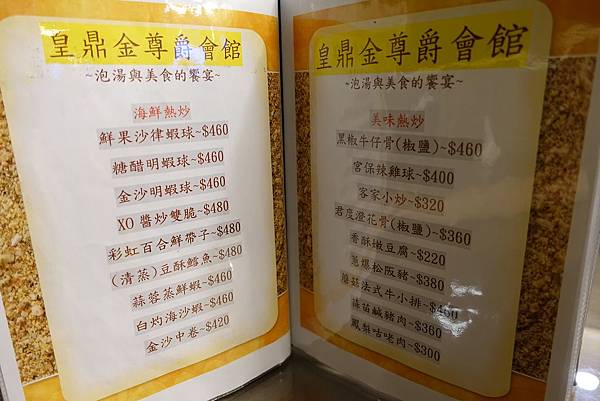 皇鼎金尊爵會館
~泡湯與美食的饗宴~
海鮮熱炒
鮮果沙律蝦球~$460
糖醋明蝦球~$460
金沙明蝦球~$460
XO醬炒雙脆~$480
彩虹百合鮮帶子~$480
(清蒸)豆酥鱈魚~$480
蒜蓉蒸鮮蝦~$460
白灼海沙蝦~$460
金沙中卷~$420
皇鼎金尊爵會館
~泡湯與美食的饗宴~
美味熱炒
黑椒牛仔骨(椒鹽)~$460
宮保辣雞球~$400
客家小炒~$320
君度澄花骨(椒鹽)~$360
香酥嫩豆腐~$220
蔥爆松阪豬~$380
蘑菇法式牛小排~$460
蒜苗鹹豬肉~$360
鳳梨咕咾肉~$300